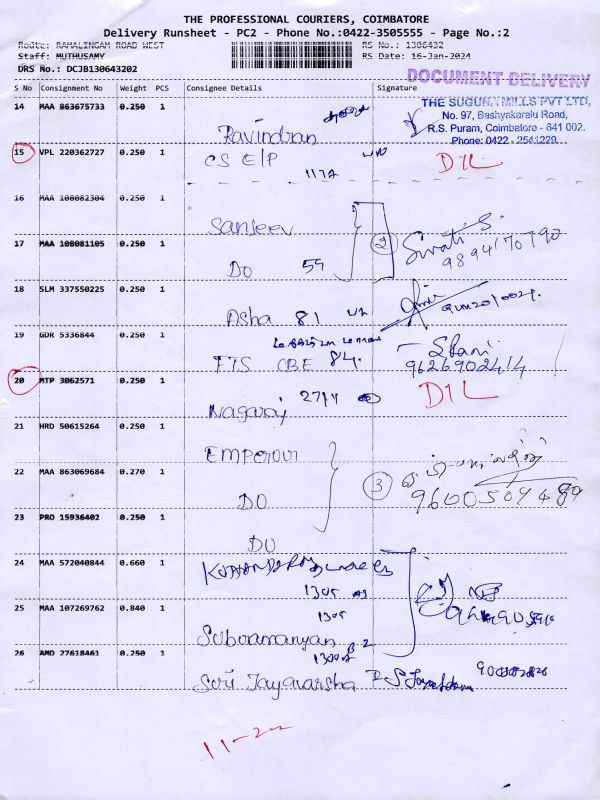 THE PROFESSIONAL COURIERS, COIMBATORE
Delivery Runsheet - PC2 - Phone No.:0422-3505555 - Page No.:2
Route: RAMALINGAM ROAD WEST RS No.: 1306432
Staff: MUTHUSAMY RS Date: 16-Jan-2024
DRS No.: DCJB130643202
DOCUMENT DELIVERY
S No Consignment No Weight PCS Consignee Details Signature
THE SUGUNA MILLS PVT LTD,
No. 97, Bashyakaralu Road,
R.S. Puram, Coimbatore - 641 002.
Phone: 0422 - 2541229
14 MAA 863675733 0.250 1
Ravindran
15 VPL 220362727 0.250 1 CS E/P D1L
1172
16 MAA 108082304 0.250 1
Sanjeev
17 MAA 108081105 0.250 1 2
DO 59 9894170790
18 SLM 337550225 0.250 1
Asha 81
19 GDR 5336844 0.250 1
FTS CBE 84 9626902414
20 MTP 3062571 0.250 1 D1L
Nagaraj
21 HRD 50615264 0.250 1
Emperour
22 MAA 863069684 0.270 1 3
DO 9600509489
23 PRO 15936402 0.250 1
DO
24 MAA 572040844 0.660 1
1305
25 MAA 107269762 0.840 1
1305
Subramanyan
26 AMD 27618461 0.250 1
Sri Jayavarsha
11-22